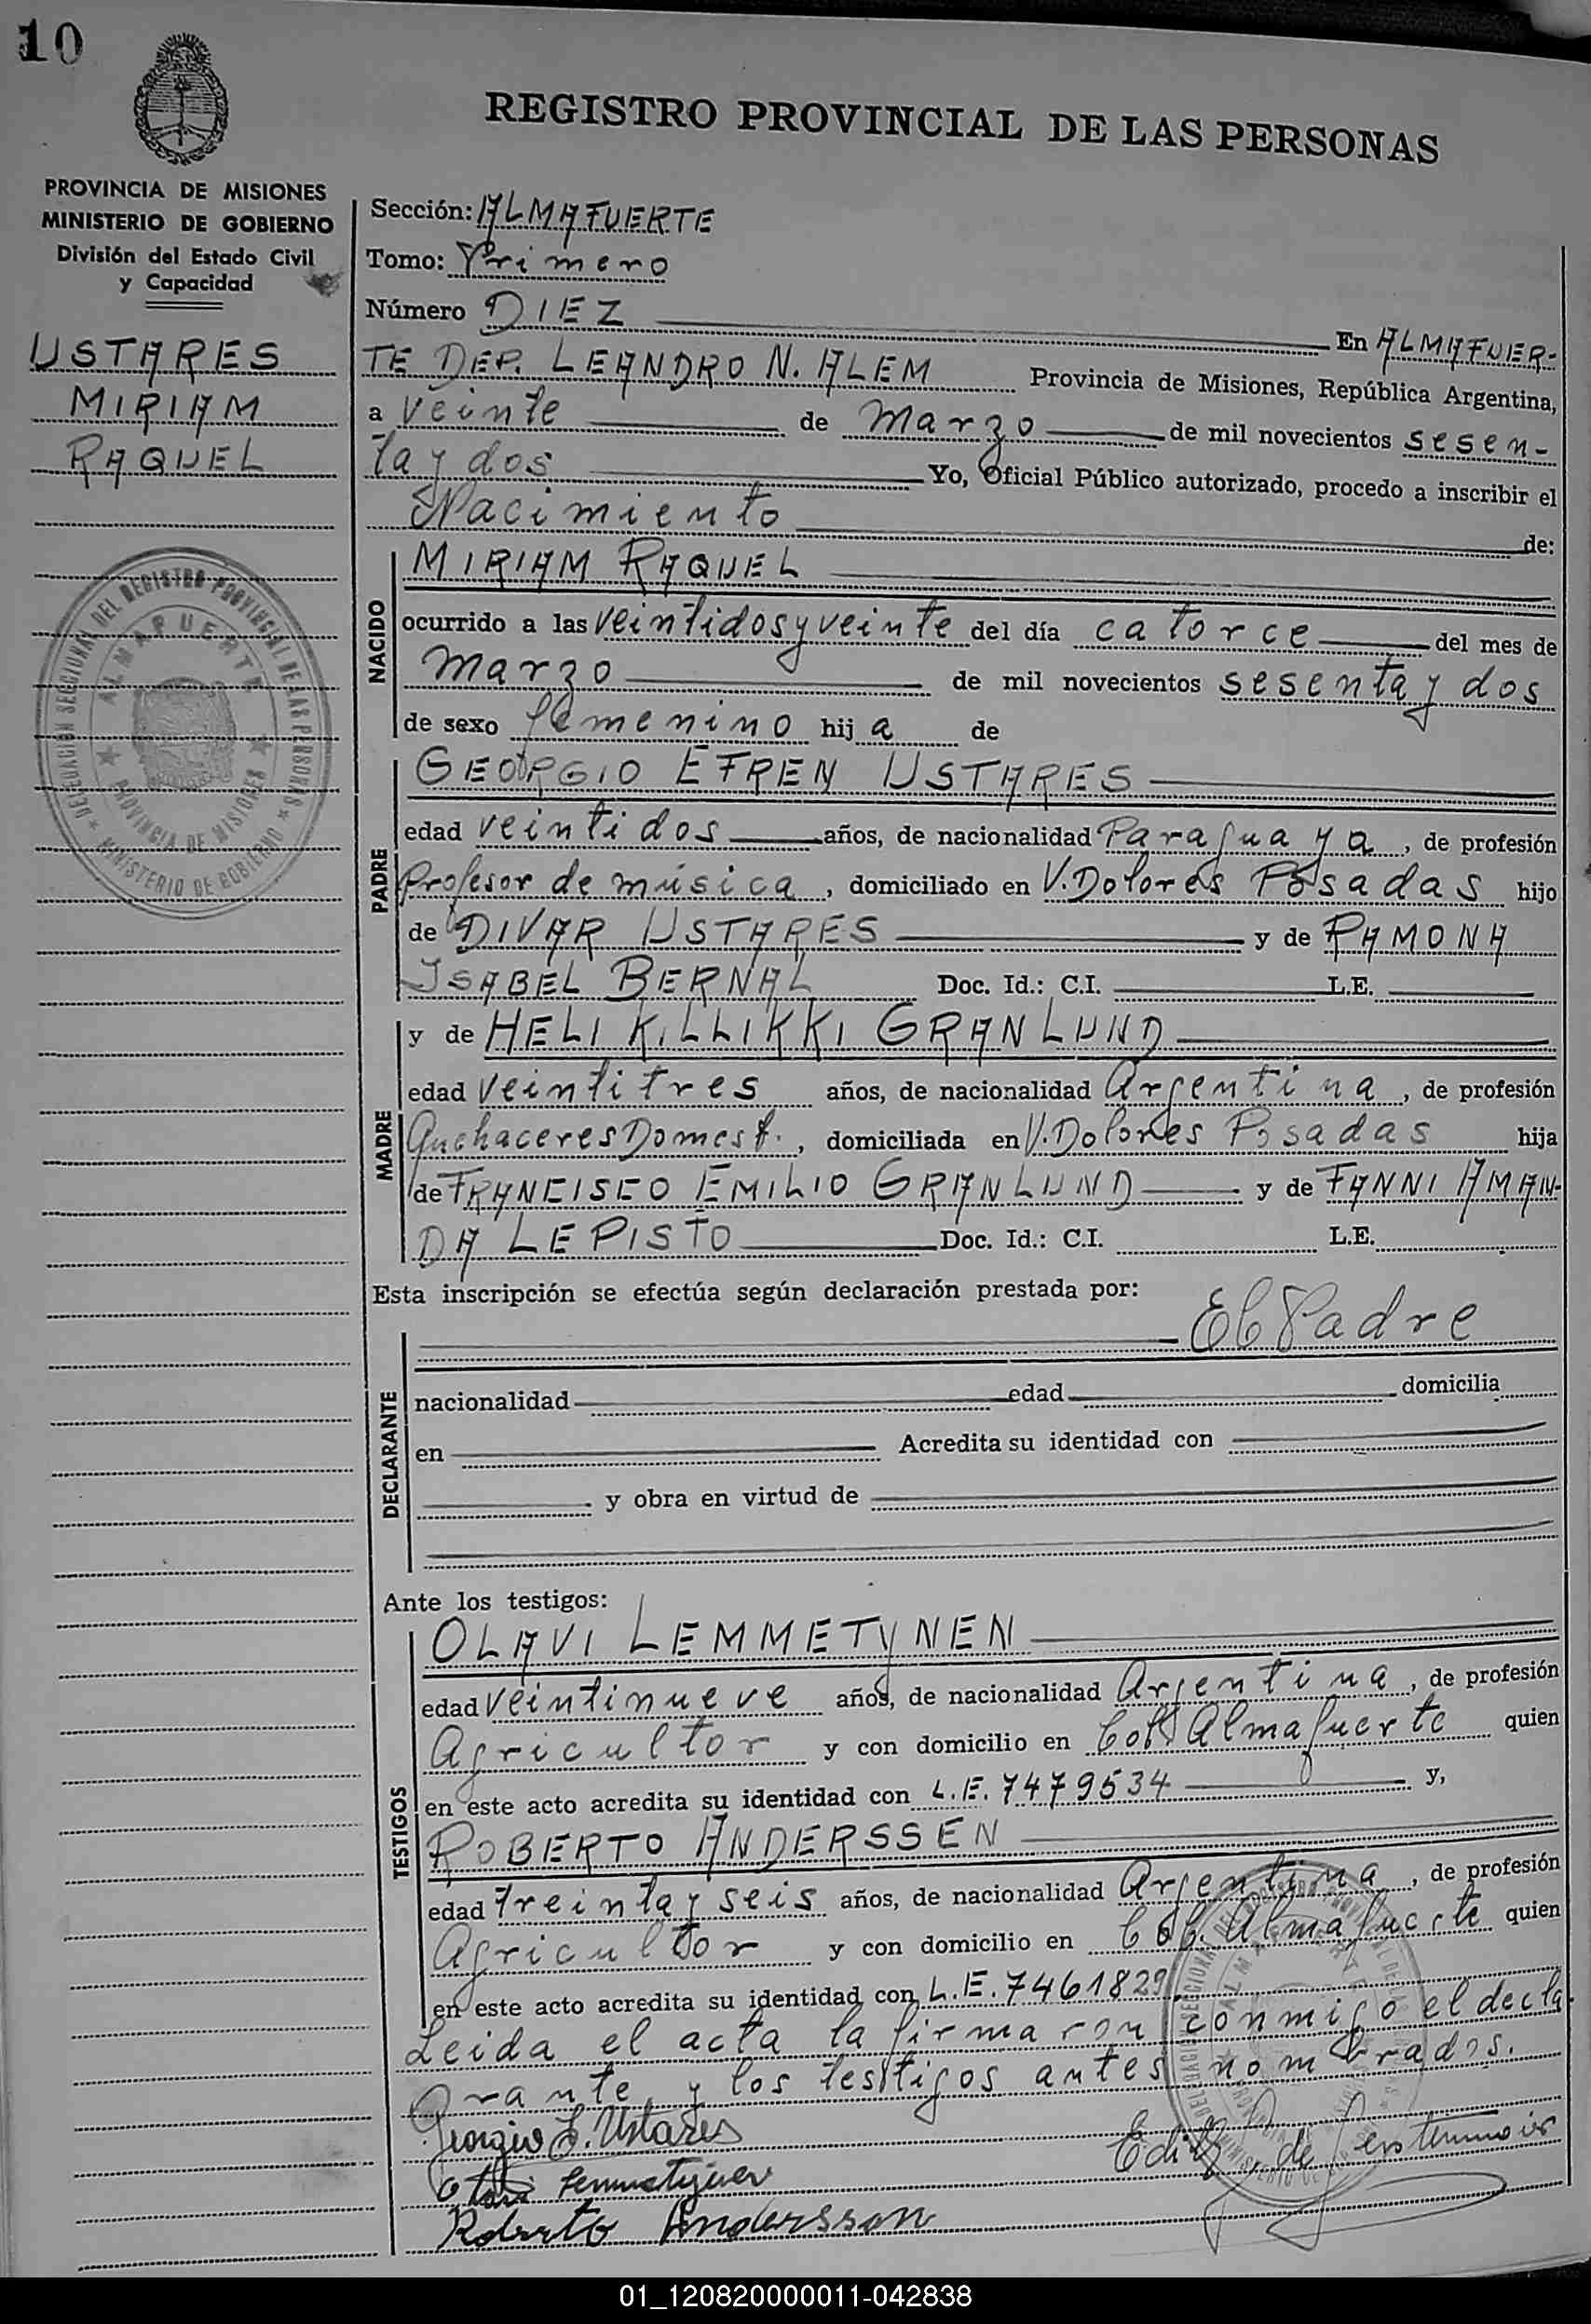 10
REGISTRO PROVINCIAL DE LAS PERSONAS
PROVINCIA DE MISIONES
MINISTERIO DE GOBIERNO
División del Estado Civil
y Capacidad
USTARES
MIRIAM
RAQUEL
DELEGACION SECCIONAL DEL REGISTRO PROVINCIAL DE LAS PERSONAS
ALMAFUERTE
PROVINCIA DE MISIONES
MINISTERIO DE GOBIERNO
Sección: ALMAFUERTE
Tomo: Primero
Número DIEZ En ALMAFUER-
TE DEP. LEANDRO N. ALEM Provincia de Misiones, República Argentina,
a veinte de marzo de mil novecientos sesen-
ta y dos Yo, Oficial Público autorizado, procedo a inscribir el
Nacimiento de:
NACIDO
MIRIAM RAQUEL
ocurrido a las veintidos y veinte del día catorce del mes de
marzo de mil novecientos sesenta y dos
de sexo femenino hij a de
PADRE
GEORGIO EFREN USTARES
edad veintidos años, de nacionalidad Paraguaya, de profesión
Profesor de música, domiciliado en V. Dolores Posadas hijo
de DIVAR USTARES y de RAMONA
ISABEL BERNAL Doc. Id.: C.I. L.E.
MADRE
y de HELI KILLIKKI GRANLUND
edad veintitres años, de nacionalidad Argentina, de profesión
Quehaceres Domest., domiciliada en V. Dolores Posadas hija
de FRANCISCO EMILIO GRANLUND y de FANNI AMAN-
DA LEPISTO Doc. Id.: C.I. L.E.
Esta inscripción se efectúa según declaración prestada por:
El Padre
DECLARANTE
nacionalidad edad domicilia
en Acredita su identidad con
y obra en virtud de
Ante los testigos:
TESTIGOS
OLAVI LEMMETYNEN
edad veintinueve años, de nacionalidad Argentina, de profesión
Agricultor y con domicilio en Col. Almafuerte quien
en este acto acredita su identidad con L.E. 7479534 y,
ROBERTO ANDERSSEN
edad treinta y seis años, de nacionalidad Argentina, de profesión
Agricultor y con domicilio en Col. Almafuerte quien
en este acto acredita su identidad con L.E. 7461829.
Leida el acta la firma con conmigo el decla-
rante y los testigos antes nombrados.
Georgio E. Ustares
Olavi Lemmetynen
Roberto Andersson
01_120820000011-042838